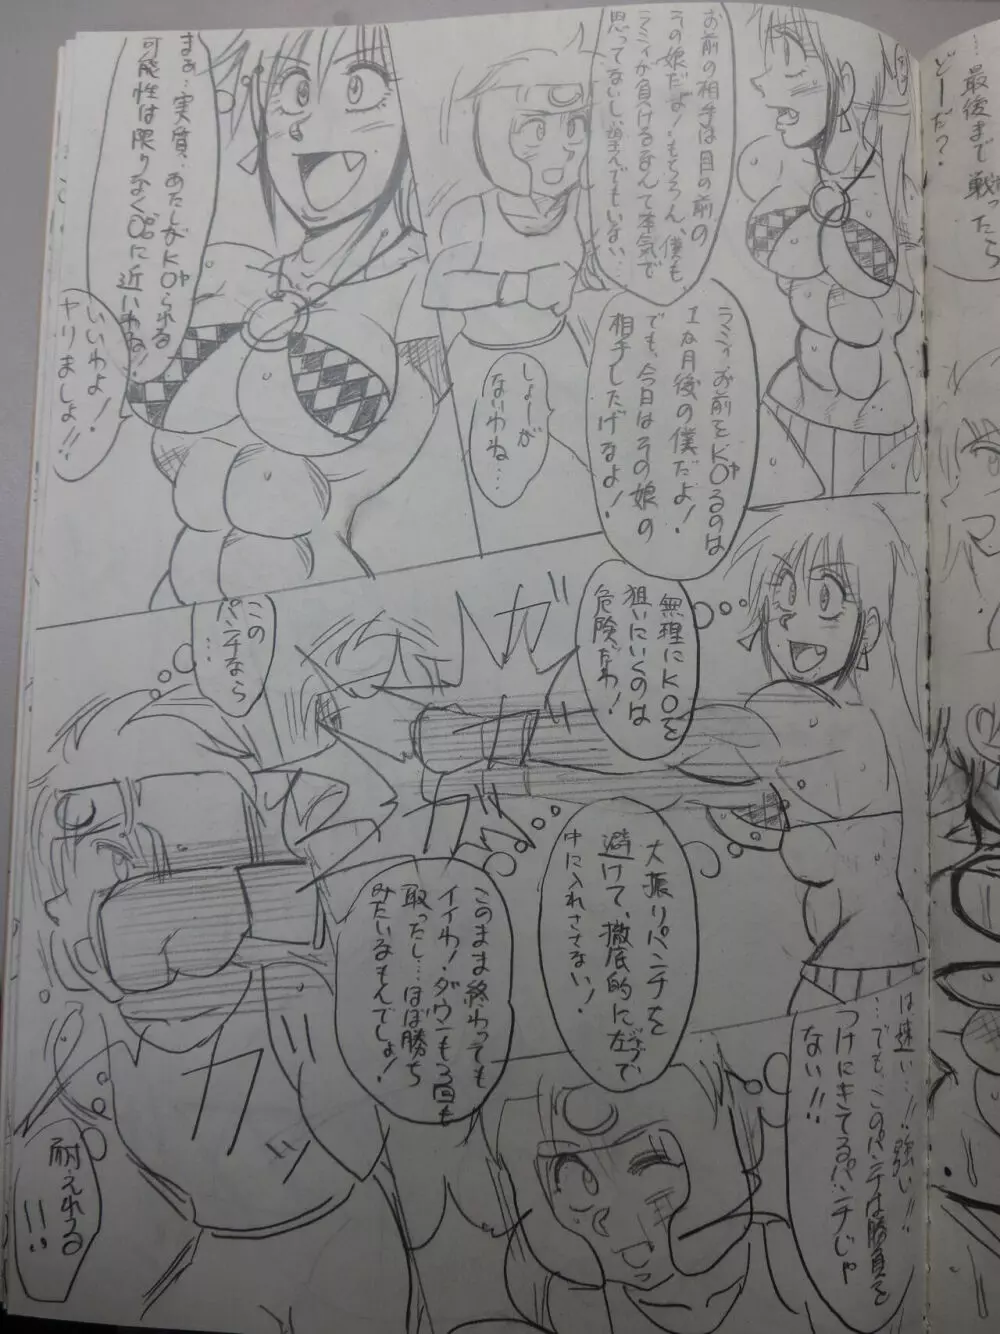 お前の相手は目の前の
その娘だよ！もちろん、僕も
ラミィが負けるなんて本気で
思ってないし望んでもいない…
ラミィ、お前をKOするのは
1か月後の僕だよ！
でも、今日はその娘の
相手したげなよ！
しょーが
ないわね…
まぁ…実質、あたしがKOられる
可能性は限りなく0%に近いわね！
いいわよ！
ヤりましょ!!
無理にKOを
狙いにいくのは
危険だわ！
ガ
この
パンチなら
…
大振りパンチを
避けて、徹底的に左で
中に入れさせない！
このまま終わっても
イイわ！ダウンも3回も
取ったし…ほぼ勝ち
みたいなもんでしょ！
は速い…!!強い!!
…でも、このパンチは勝負を
つけにきてるパンチじゃ
ない!!
ガ
耐えれる
!!
…最後まで戦ったら
どーだ？